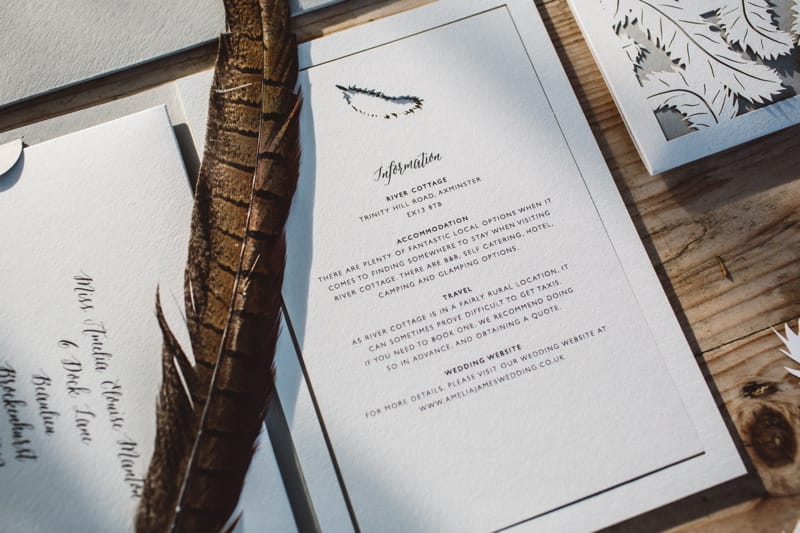 Information
RIVER COTTAGE
TRINITY HILL ROAD, AXMINSTER
EX13 8TB
ACCOMMODATION
THERE ARE PLENTY OF FANTASTIC LOCAL OPTIONS WHEN IT
COMES TO FINDING SOMEWHERE TO STAY WHEN VISITING
RIVER COTTAGE. THERE ARE B&B, SELF CATERING, HOTEL,
CAMPING AND GLAMPING OPTIONS.
TRAVEL
AS RIVER COTTAGE IS IN A FAIRLY RURAL LOCATION, IT
CAN SOMETIMES PROVE DIFFICULT TO GET TAXIS.
IF YOU NEED TO BOOK ONE, WE RECOMMEND DOING
SO IN ADVANCE, AND OBTAINING A QUOTE.
WEDDING WEBSITE
FOR MORE DETAILS, PLEASE VISIT OUR WEDDING WEBSITE AT
WWW.AMELIAJAMESWEDDING.CO.UK
Miss Amelia Louise Manton
6 Dock Lane
Beaulieu
Brockenhurst